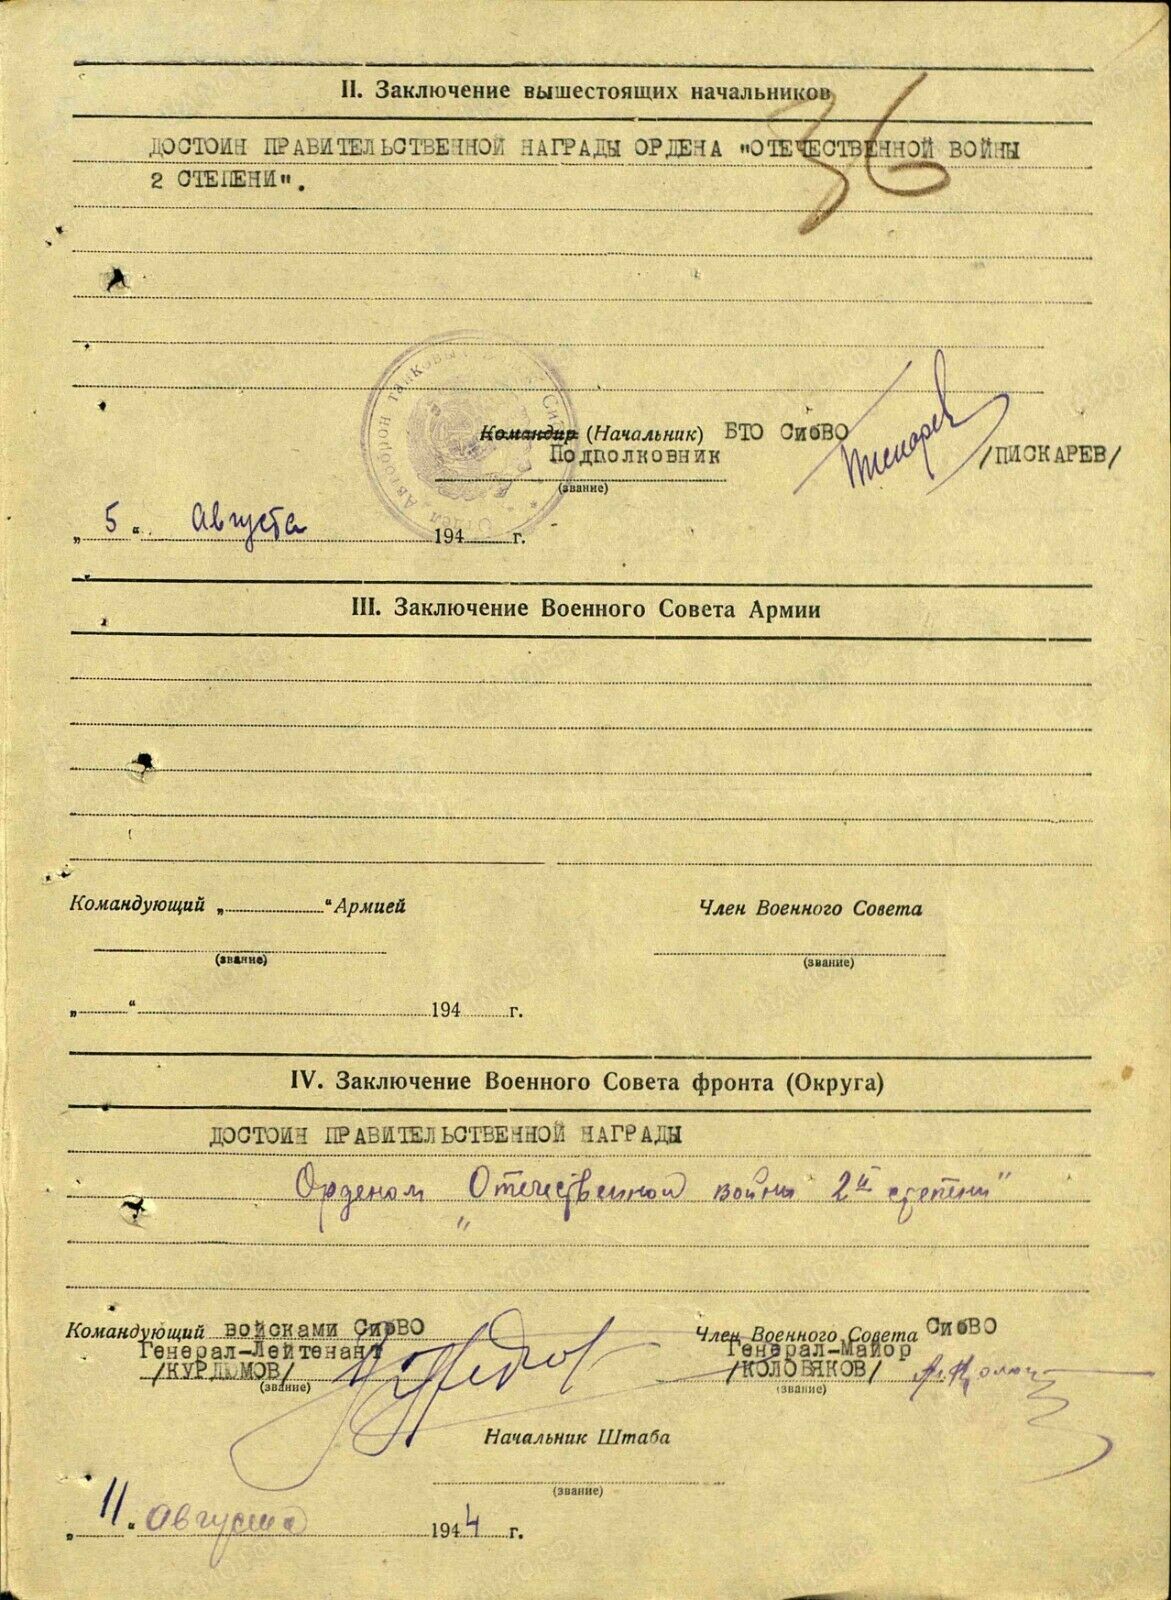 36
II. Заключение вышестоящих начальников
ДОСТОИН ПРАВИТЕЛЬСТВЕННОЙ НАГРАДЫ ОРДЕНА "ОТЕЧЕСТВЕННОЙ ВОЙНЫ
2 СТЕПЕНИ".
Командир (Начальник) БТО СибВО
Подполковник
/ПИСКАРЕВ/
(звание)
„ 5 “ Августа 194 г.
III. Заключение Военного Совета Армии
Командующий „ “ Армией
Член Военного Совета
(звание)
(звание)
„ “ 194 г.
IV. Заключение Военного Совета фронта (Округа)
ДОСТОИН ПРАВИТЕЛЬСТВЕННОЙ НАГРАДЫ
Орденом "Отечественной войны 2й степени"
Командующий войсками СибВО
Генерал-Лейтенант
/КУРДЮМОВ/
(звание)
Член Военного Совета СибВО
Генерал-Майор
/КОЛОБЯКОВ/
(звание)
Начальник Штаба
(звание)
„ 11 “ августа 1944 г.